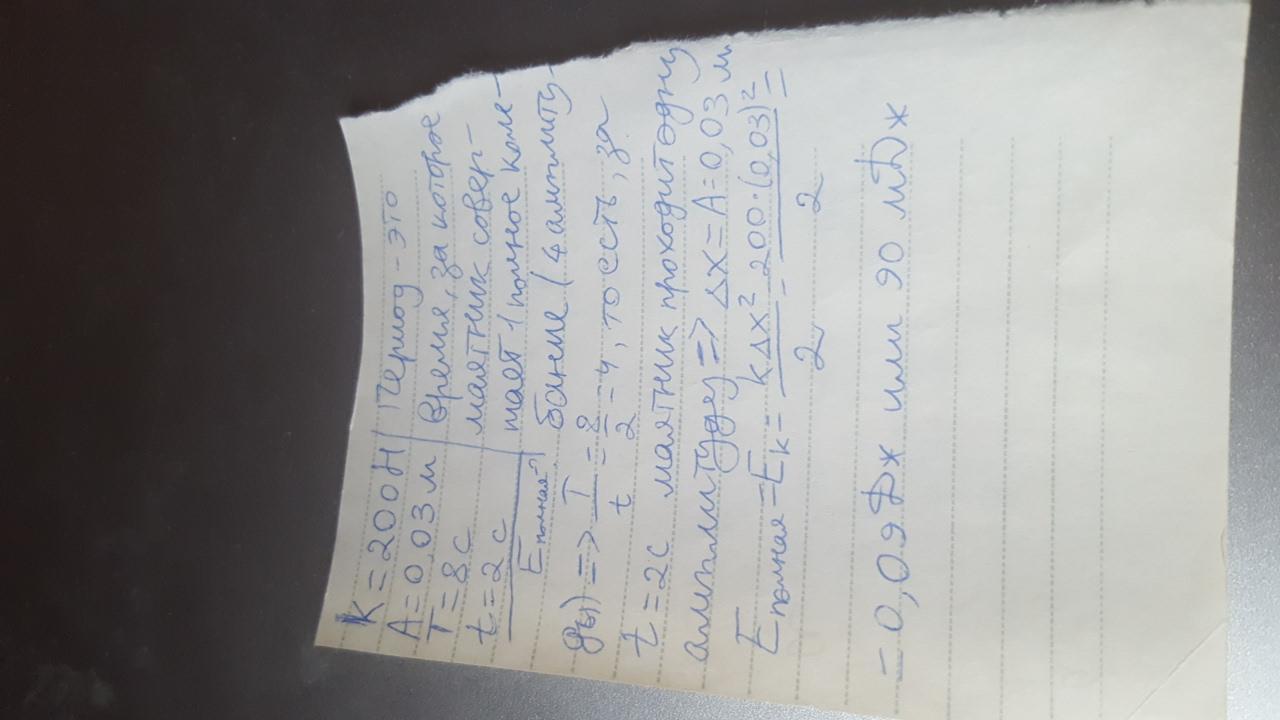 K = 200 Н
A = 0,03 м
T = 8 с
t = 2 с
Eполная - ?
Период - это
время, за которое
маятник совер-
шает 1 полное коле-
бание (4 амплиту-
ды) => T/t = 8/2 = 4, то есть, за
t = 2с маятник проходит одну
амплитуду => Δx = A = 0,03 м
Eполная = Eк = kΔx²/2 = 200·(0,03)²/2 =
= 0,09 Дж или 90 мДж